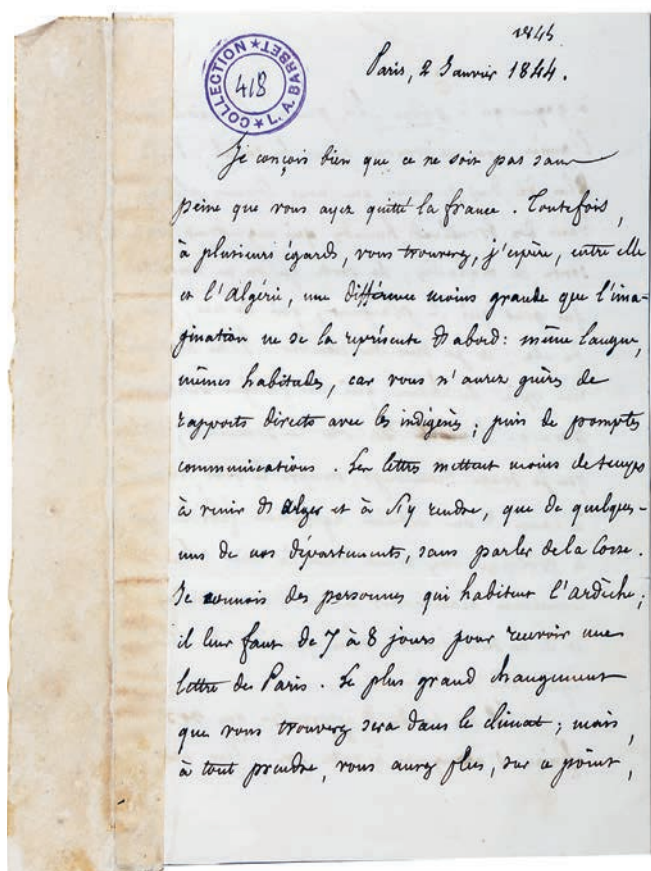 1844.
Paris, 2 Janvier 1844.
COLLECTION ★ L. A. BARBET ★
418
Je conçois bien que ce ne soit pas sans
peine que vous ayez quitté la france. Toutefois,
à plusieurs égards, vous trouverez, j'espère, entre elle
et l'Algérie, une différence moins grande que l'ima-
gination ne se la représente d'abord: même langue,
mêmes habitudes, car vous n'aurez guères de
rapports directs avec les indigènes; puis de promptes
communications. Les lettres mettent moins de temps
à venir d'Alger et à s'y rendre, que de quelques-
uns de nos départements, sans parler de la Corse.
Je connois des personnes qui habitent l'ardèche;
il leur faut de 7 à 8 jours pour recevoir une
lettre de Paris. Le plus grand changement
que vous trouverez sera dans le climat; mais,
à tout prendre, vous aurez plus, sur ce point,